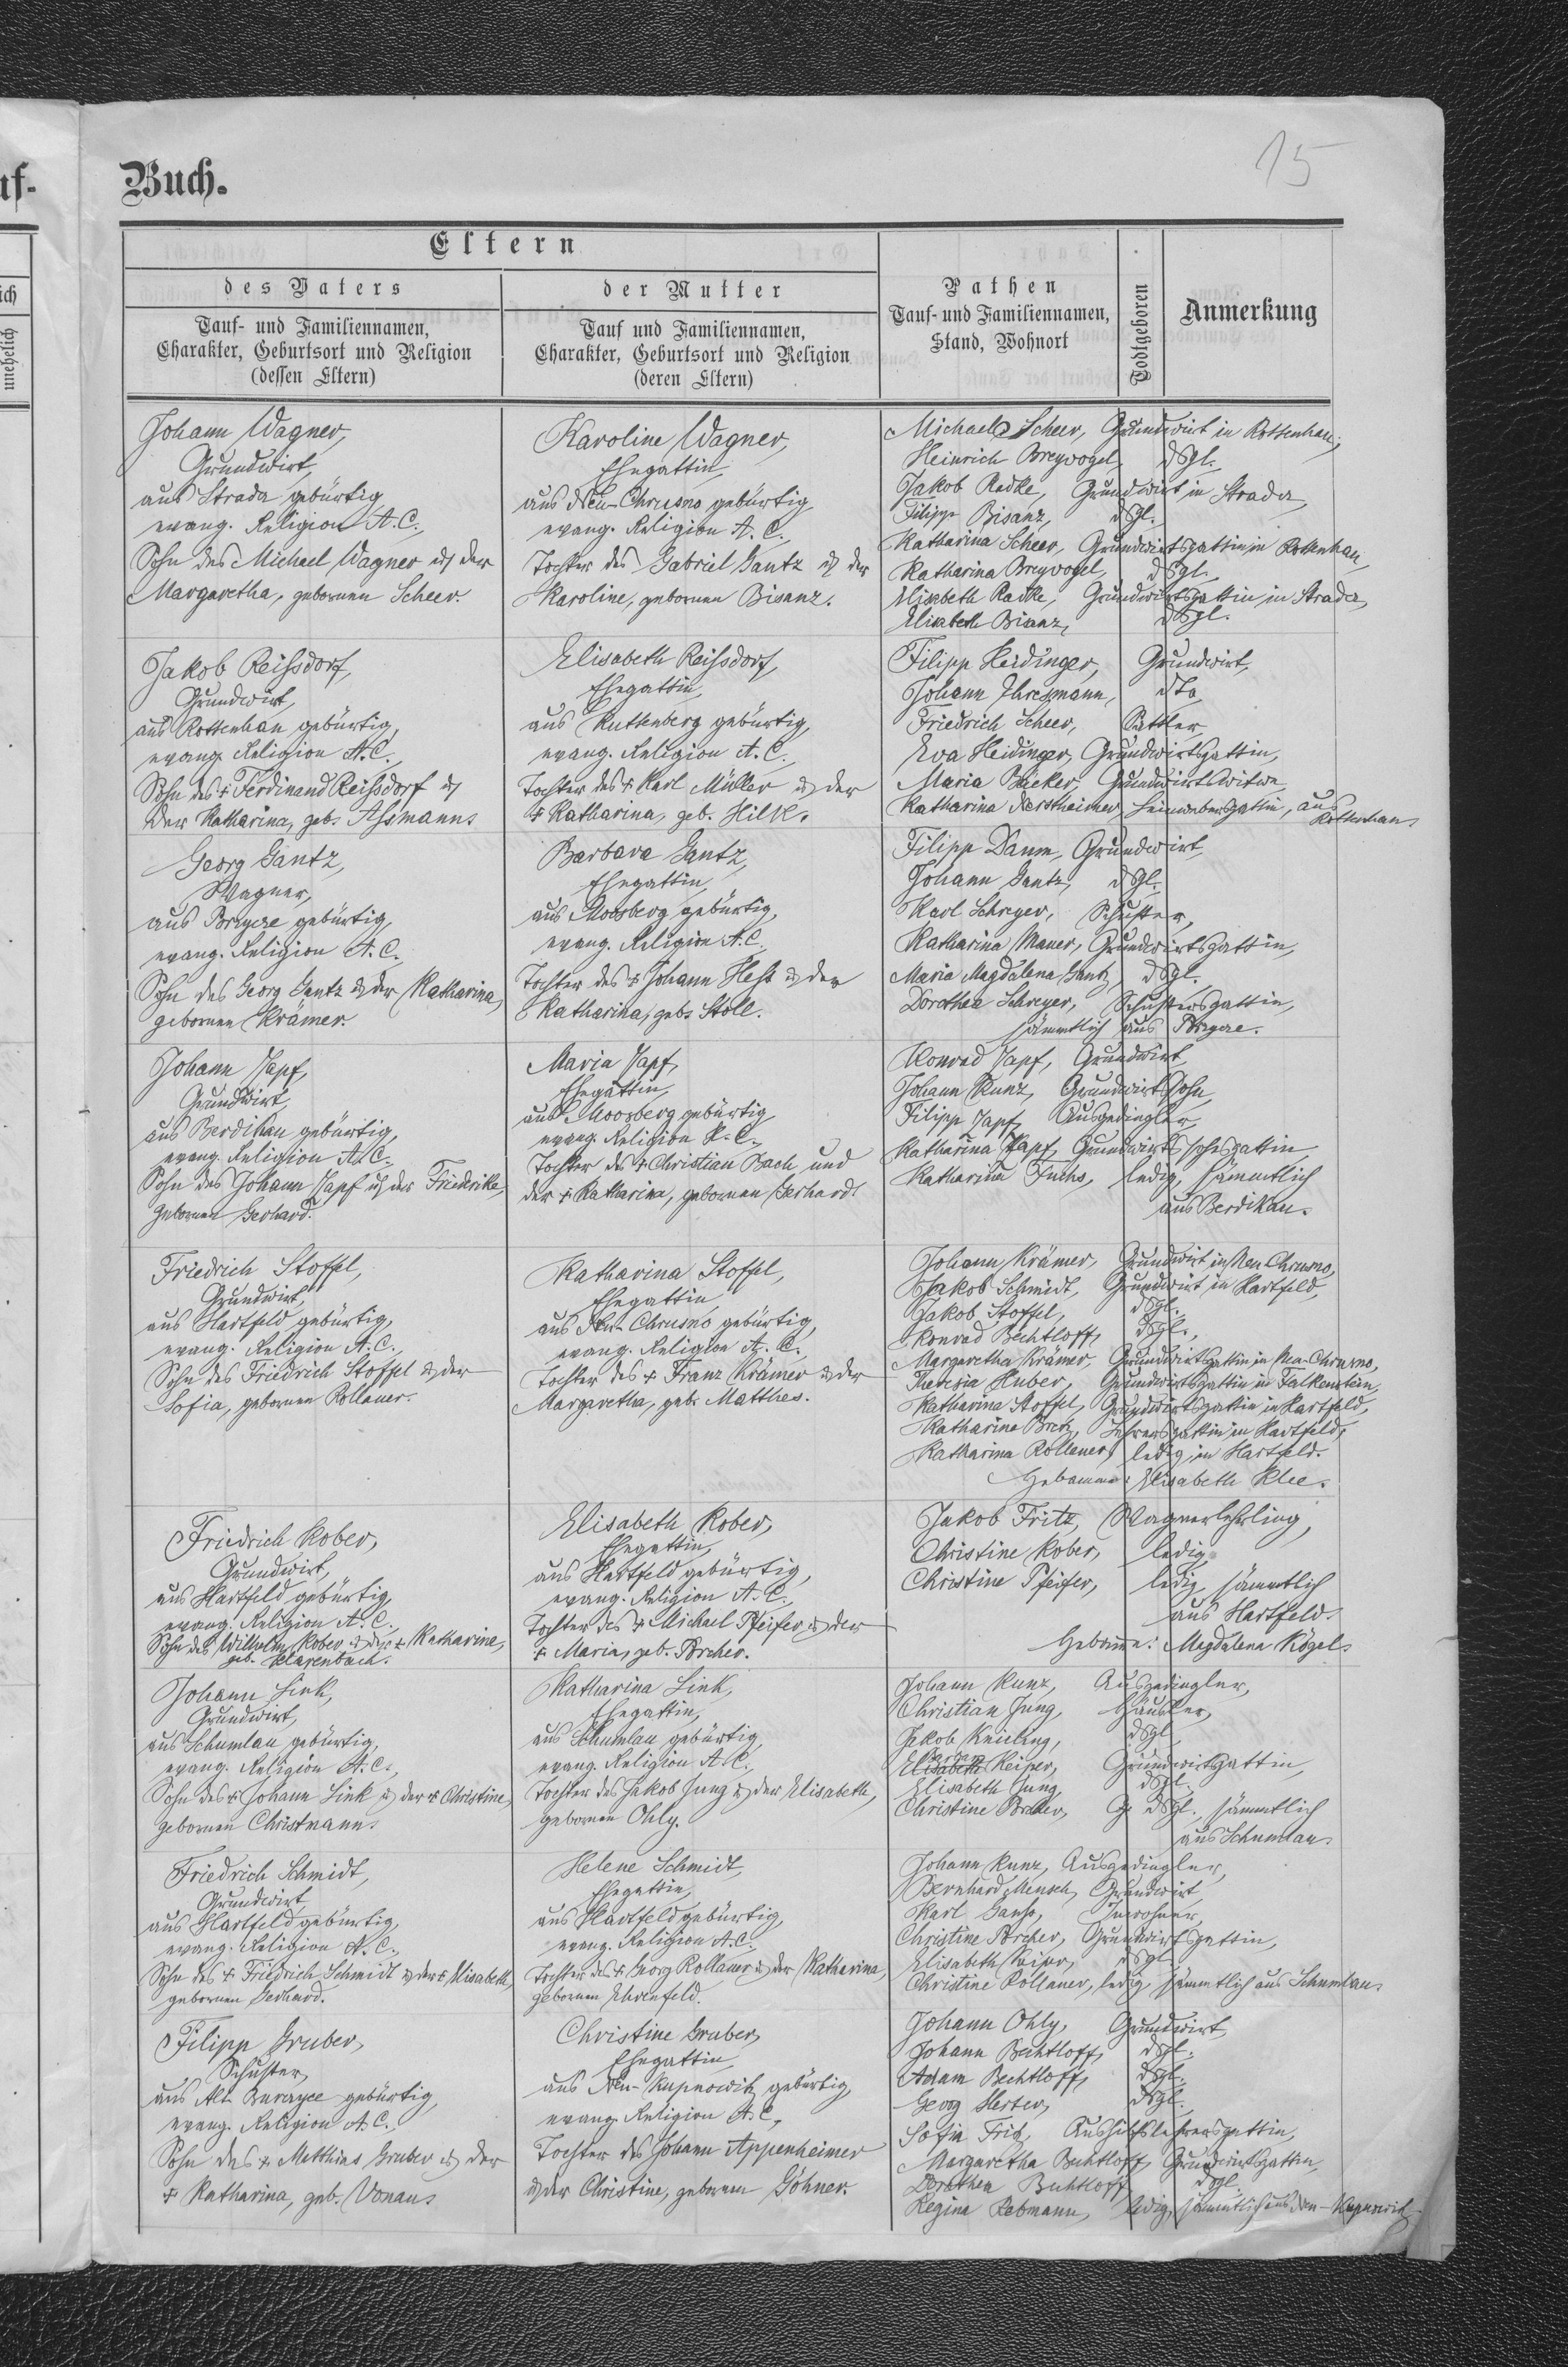 uf-
Buch.
15
ich
unehelich
Eltern
des Vaters
der Mutter
Pathen
Tauf- und Familiennamen,
Stand, Wohnort
Todtgeboren
Anmerkung
Tauf- und Familiennamen,
Charakter, Geburtsort und Religion
(dessen Eltern)
Tauf und Familiennamen,
Charakter, Geburtsort und Religion
(deren Eltern)
Johann Wagner,
Grundwirt,
aus Strada gebürtig
evang. Religion A. C.,
Sohn des Michael Wagner u. der
Margaretha, gebornen Scheer.
Karoline Wagner,
Ehegattin,
aus Neu-Chrusno gebürtig
evang. Religion A. C.,
Tochter des Gabriel Gantz u. der
Karoline, gebornen Bisanz.
Michael Scheer, Grundwirt in Rottenhan,
Heinrich Breyvogel, dsgl.
Jakob Radke, Grundwirt in Strada,
Filipp Bisanz, dsgl.
Katharina Scheer, Grundwirtsgattin in Rottenhan,
Katharina Breyvogel, dsgl.
Elisabeth Radke, Grundwirtsgattin in Strada,
Elisabeth Bisanz, dsgl.
Jakob Reissdorf,
Grundwirt,
aus Rottenhan gebürtig,
evang. Religion A. C.
Sohn des + Ferdinand Reissdorf u.
der Katharina, geb. Assmann.
Elisabeth Reissdorf,
Ehegattin,
aus Kuttenberg gebürtig,
evang. Religion A. C.,
Tochter des + Karl Müller u. der
+ Katharina, geb. Hilk.
Filipp Heidinger, Grundwirt,
Johann dto
Friedrich Scheer, Sattler,
Eva Heidinger, Grundwirtsgattin,
Maria Bäcker, Grundwirtswitwe
Katharina aus
Rottenhan.
Georg Gantz,
Wagner,
aus gebürtig,
evang. Religion A. C.
Sohn des Georg Gantz u. der Katharina,
gebornen Krämer.
Barbara Gantz,
Ehegattin,
aus Moosberg gebürtig,
evang. Religion A. C.
Tochter des + Johann Hess u. der
Katharina, geb. Stoll.
Filipp Daum, Grundwirt,
Johann Gantz, dsgl.
Karl Schreyer, Schuster,
Katharina Mauer, Grundwirtsgattin,
Maria Magdalena Gantz, dsgl.
Dorothea Schreyer, Schustersgattin,
sämmtlich aus
Johann Zapf,
Grundwirt,
aus Berdikau gebürtig,
evang. Religion A. C.
Sohn des Johann Zapf u. der Friederike,
gebornen Gerhard.
Maria Zapf,
Ehegattin,
aus Moosberg gebürtig
evang. Religion A. C.,
Tochter des + Christian Bach und
der + Katharina, gebornen Gerhard.
Konrad Zapf, Grundwirt,
Johann Kunz, Grundwirtssohn,
Filipp Zapf, Ausgedingler,
Katharina Zapf, Grundwirtssohnsgattin
Katharina Fuchs, ledig, sämmtlich
aus Berdikau.
Friedrich Stoffel,
Grundwirt,
aus Hartfeld gebürtig,
evang. Religion A. C.,
Sohn des Friedrich Stoffel u. der
Sofia, gebornen Rollauer.
Katharina Stoffel,
Ehegattin
aus Neu-Chrusno gebürtig,
evang. Religion A. C.
Tochter des + Franz Krämer u. der
Margaretha, geb. Matthes.
Johann Krämer, Grundwirt in Neu Chrusno,
Jakob Schmidt, Grundwirt in Hartfeld,
Jakob Stoffel, dsgl.,
Konrad Bechtloff, dsgl.,
Margaretha Krämer, Grundwirtsgattin in Neu-Chrusno,
Theresia Huber, Grundwirtsgattin in Falkenstein,
Katharina Stoffel, Grundwirtsgattin in Hartfeld,
Katharina Lehrersgattin in Hartfeld,
Katharina Rollauer, ledig, in Hartfeld.
Hebamme: Elisabeth Klee.
Friedrich Kober,
Grundwirt,
aus Hartfeld gebürtig,
evang. Religion A. C.
Sohn des Wilhelm Kober u. der + Katharina,
geb. Klarenbach.
Elisabeth Kober,
Ehegattin,
aus Hartfeld gebürtig,
evang. Religion A. C.
Tochter des + Michael Pfeifer u. der
+ Maria, geb. Porcher.
Jakob Fritz, Wagnerlehrling,
Christine Kober, ledig
Christine Pfeifer, ledig, sämmtlich
aus Hartfeld.
Hebamme: Magdalena Kögel.
Johann Link,
Grundwirt,
aus Schumlau gebürtig,
evang. Religion A. C.,
Sohn des + Johann Link u. der + Christine,
gebornen Christmann.
Katharina Link,
Ehegattin,
aus Schumlau gebürtig,
evang. Religion A. C.
Tochter des Jakob Jung u. der Elisabeth,
gebornen Ohly.
Johann Kunz, Ausgedingler,
Christian Jung, Häusler,
Jakob dsgl.
Barbara
Elisabeth Keiper, Grundwirtsgattin,
Elisabeth Jung, dsgl.
Christine dsgl., sämmtlich
aus Schumlau.
Friedrich Schmidt,
Grundwirt
aus Hartfeld gebürtig,
evang. Religion A. C.
Sohn des + Friedrich Schmidt u. der + Elisabeth,
gebornen Gerhard.
Helene Schmidt,
Ehegattin,
aus Hartfeld gebürtig,
evang. Religion A. C.
Tochter des + Georg Rollauer u. der Katharina,
gebornen Ehrenfeld.
Johann Kunz, Ausgedingler,
Bernhard Mensch, Grundwirt
Karl Inwohner,
Christine Porcher, Grundwirtsgattin,
Elisabeth Keiper, dsgl.
Christine Rollauer, ledig, sämmtlich aus Schumlau.
Filipp Gruber,
Schuster,
aus Alt gebürtig,
evang. Religion A. C.,
Sohn des + Matthias Gruber u. der
+ Katharina, geb. Vonau.
Christine Gruber,
Ehegattin,
aus Neu-Kupnowitz gebürtig,
evang. Religion A. C.,
Tochter des Johann Appenheimer
u. der Christine, gebornen Göhner.
Johann Ohly, Grundwirt,
Johann Bechtloff, dsgl.
Adam Bechtloff, dsgl.
Georg Herter, dsgl.
Sofia Aushilfslehrersgattin,
Margaretha Bechtloff, Grundwirtsgattin,
Dorothea Bechtloff, dsgl.
Regina Rebmann, ledig, sämmtlich aus Neu-Kupnowitz